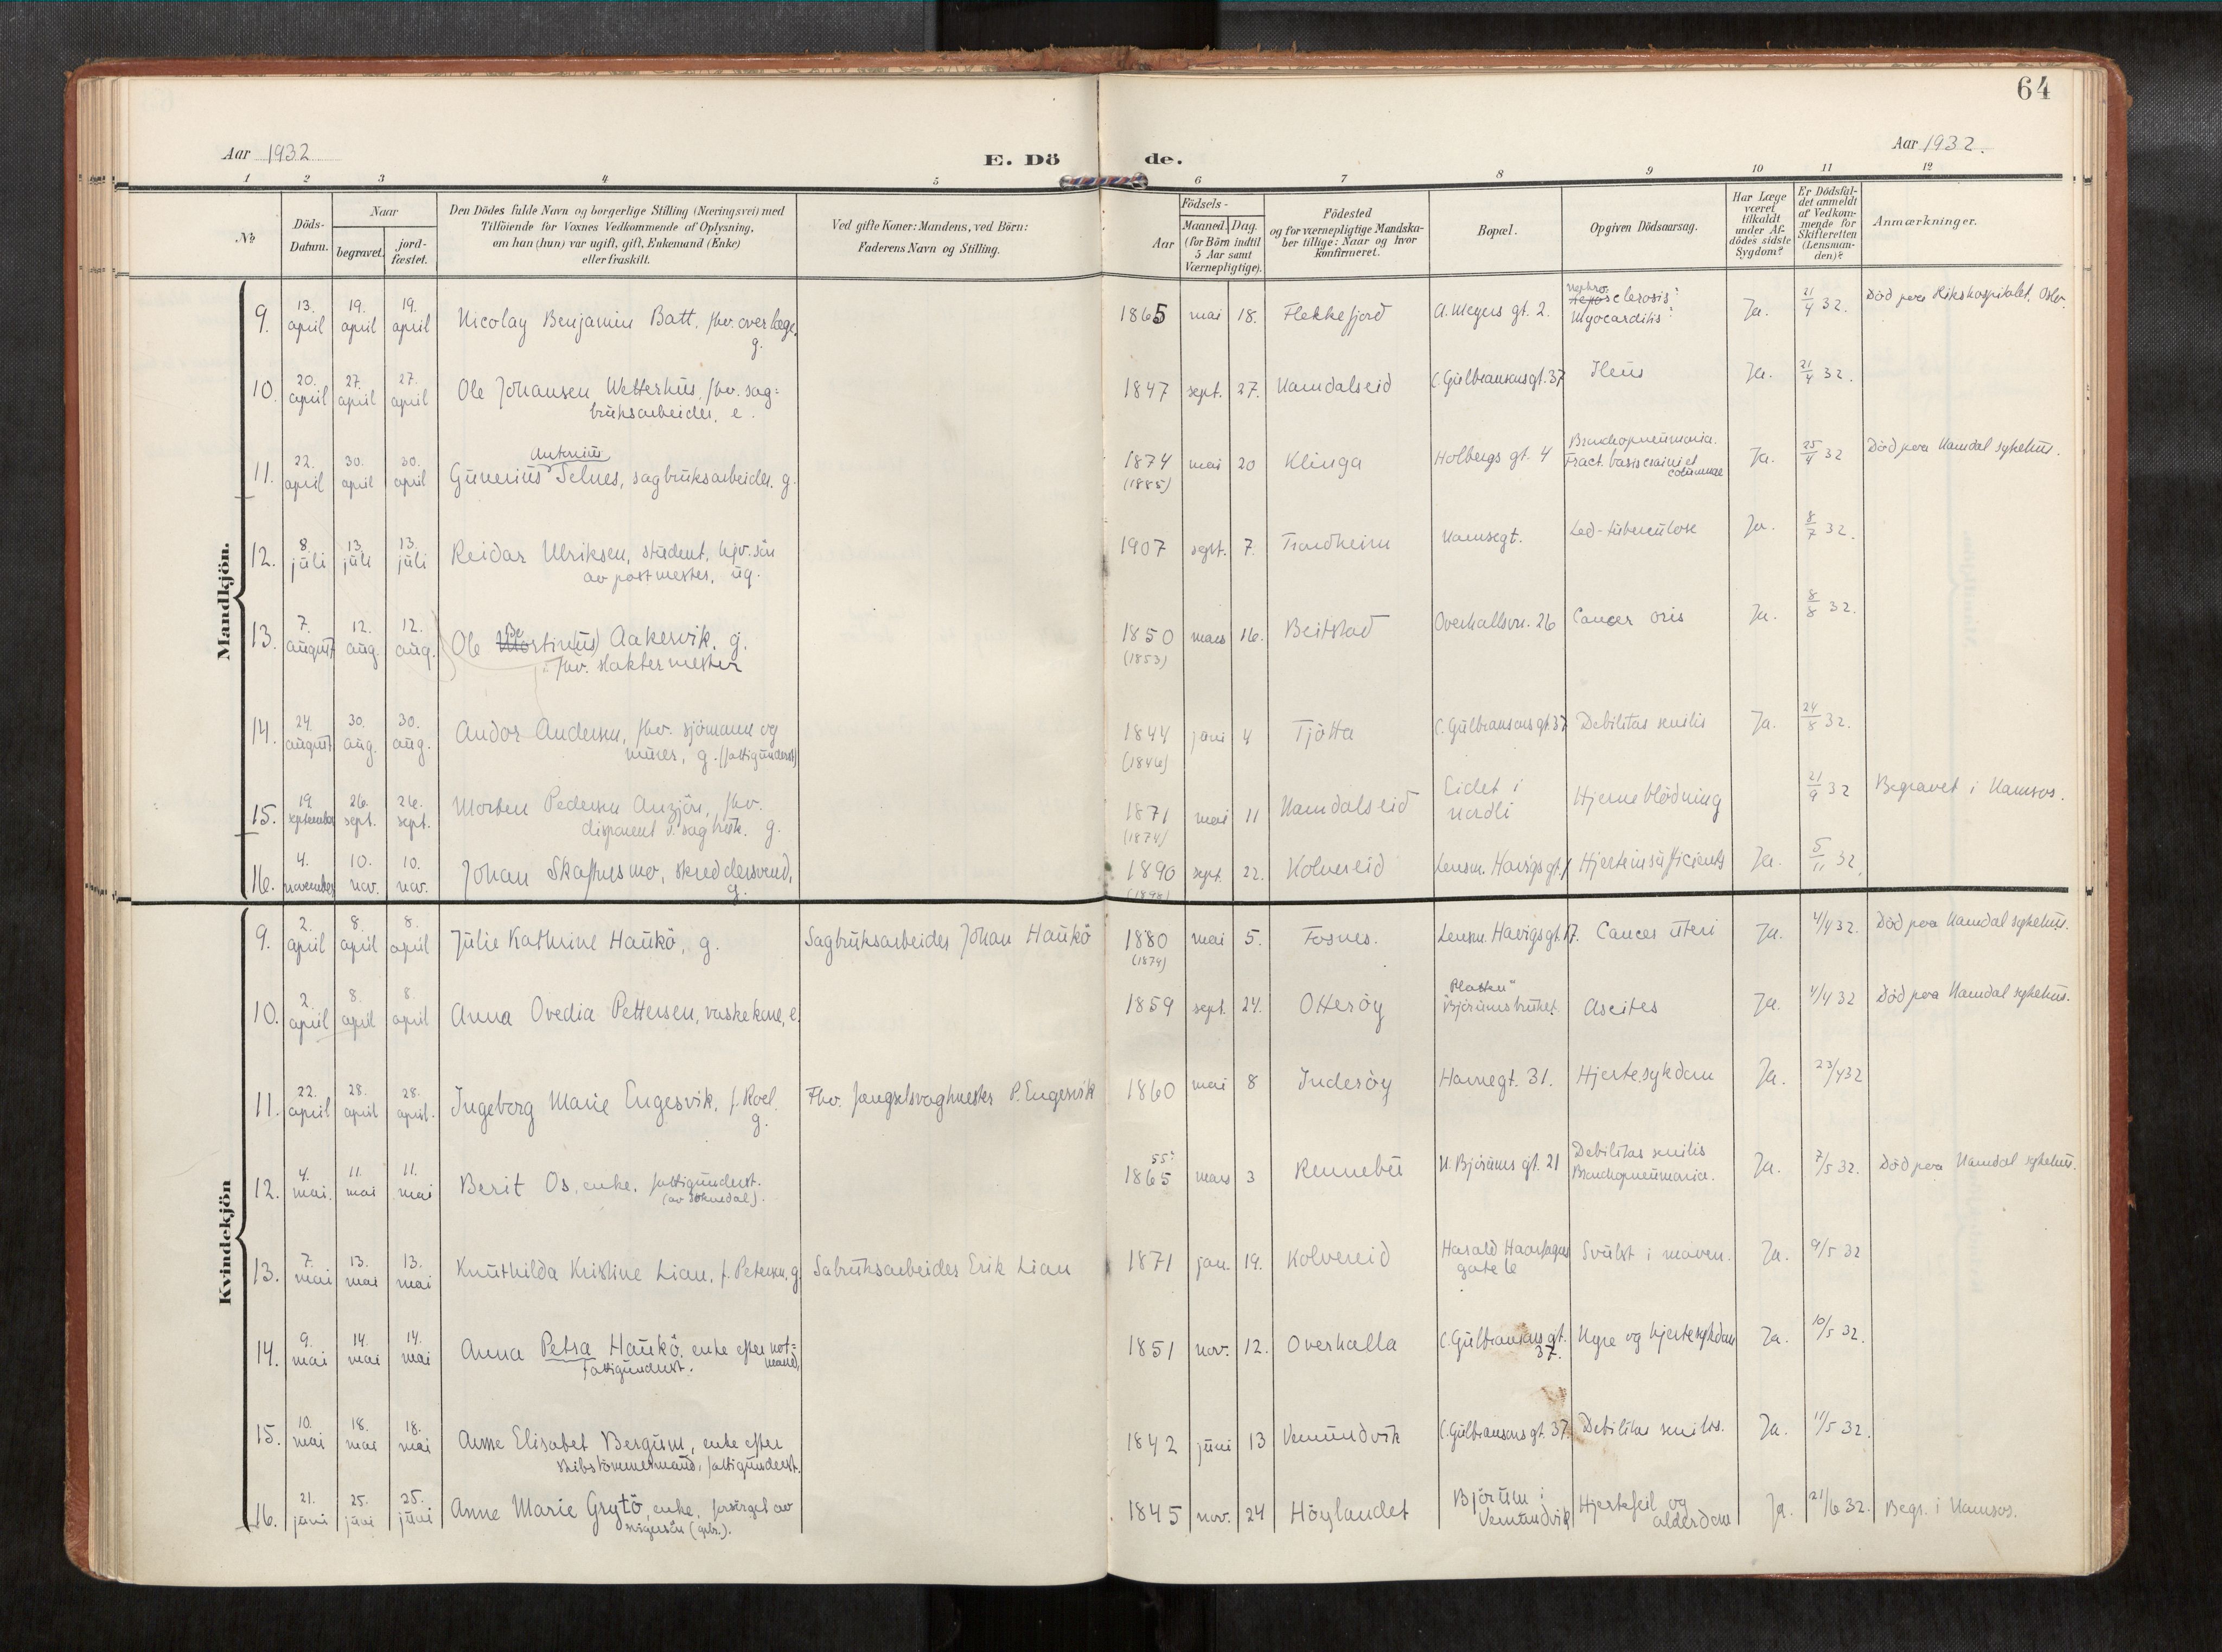 64
Aar 1932
E. Dö
de.
Aar 1932.
1 2 3 4 5 6 7 8 9 10 11 12
No
Döds-
Datum.
Naar
begravet.
jord-
fæstet.
Den Dödes fulde Navn og borgerlige Stilling (Næringsvei) med
Tilföiende for Voxnes Vedkommende af Oplysning,
om han (hun) var ugift, gift, Enkemand (Enke)
eller fraskilt.
Ved gifte Koner: Mandens, ved Börn:
Faderens Navn og Stilling.
Födsels-
Aar
Maaned. Dag.
(for Börn indtil
5 Aar samt
Værnepligtige).
Födested
og for værnepligtige Mandska-
ber tillige: Naar og hvor
konfirmeret.
Bopæl.
Opgiven Dödsaarsag.
Har Læge
været
tilkaldt
under Af-
dödes sidste
Sygdom?
Er Dödsfal-
det anmeldt
af Vedkom-
mende for
Skifteretten
(Lensman-
den)?
Anmærkninger.
Mandkjön.
9. 13. april 19. april 19. april Nicolay Benjamin Batt, fhv. overlæge, g. 1865 mai 18. Flekkefjord A. Meyers gt. 2. Nephrosclerosis: Myocarditis: Ja. 21/4 32. Död paa Rikshospitalet, Oslo.
10. 20. april 27. april 27. april Ole Johansen Wetterhus, fhv. sag=
bruksarbeider, e. 1847 sept. 27. Namdalseid C. Gulbransons gt. 37 Ileus Ja. 21/4 32.
11. 22. april 30. april 30. april Gunerius Antonius Selnes, sagbruksarbeider. g. 1874 (1885) mai 20 Klinga Holbergs gt. 4 Bronchopneumonia. Fract. basis cranii et columnae Ja. 25/4 32 Död paa Namdal sykehus.
12. 8. juli 13. juli 13. juli Reidar Ulriksen, student, hjv. sön
av postmester, ug. 1907 sept. 7. Trondheim Namsegt. Led-tuberculose Ja. 8/7 32.
13. 7. august 12. aug. 12. aug. Ole Bertin(us) Aakervik, g.
fhv. slaktermester 1850 (1853) mars 16. Beitstad Overhallsvn. 26 Cancer oris Ja. 8/8 32.
14. 24. august 30. aug. 30. aug. Andor Andersen, fhv. sjömann og
murer, g. (fattigunderst) 1844 (1846) juni 4 Tjötta C. Gulbransons gt. 37 Debilitas senilis Ja. 24/8 32.
15. 19. september 26. sept. 26. sept. Morten Pedersen Anzjön, fhv.
disponent v. sagbruk. g. 1871 (1874) mai 11 Namdalseid Eidet i Nordli Hjerneblödning 21/9 32 Begravet i Namsos.
16. 4. november 10. nov. 10. nov. Johan Skaftnesmo, skreddersvend,
g. 1890 (1898) sept. 22. Kolvereid Lensm. Havigs gt. Hjerteinsufficients Ja. 5/11 32
Kvindekjön
9. 2. april 8. april 8. april Julie Kathrine Haukö, g. Sagbruksarbeider Johan Haukö 1880 (1879) mai 5. Fosnes. Lensm. Havigs gt. 17. Cancer uteri Ja. 4/4 32. Död paa Namdal sykehus.
10. 2. april 8. april 8. april Anna Ovedia Pettersen, vaskekone, e. 1859 sept. 24. Otteröy "Platten" Björumsbruket. Ascites Ja. 4/4 32 Död paa Namdal sykehus.
11. 22. april 28. april 28. april. Ingeborg Marie Engesvik, f. Roel.
g. Fhv. fængselsvagtmester P. Engesvik 1860 mai 8 Inderöy Havnegt. 31. Hjertesykdom Ja. 23/4 32
12. 4. mai. 11. mai 11. mai Berit Os, enke. fattigunderst.
(av Soknedal). 55? 1865 mars 3 Rennebu N. Björums gt. 21 Debilitas senilis Bronchopneumonia. Ja. 7/5 32. Död paa Namdal sykehus.
13. 7. mai 13. mai 13. mai Knuthilda Kristine Lian, f. Petersen, g. Sabruksarbeider Erik Lian 1871 jan. 19. Kolvereid Harald Haarfagres gate 6 Svulst i maven. Ja. 9/5 32
14. 9. mai 14. mai 14. mai Anna Petra Haukö, enke efter not=
mand, fattigunderst. 1851 nov. 12. Overhalla C. Gulbransons gt. 37. Nyre og hjertesykdom Ja. 10/5 32.
15. 10. mai 18. mai 18. mai Anne Elisabet Bergum, enke efter
skibstömmermand, fattigunderst. 1842 juni 13 Vemundvik C. Gulbransons gt. 37. Debilitas senilis. Ja. 11/5 32.
16. 21. juni 25. juni 25. juni Anne Marie Grytö, enke, forsörget av
svigersön (gbr.). 1845 nov. 24 Höylandet Björum i Vemundvik Hjertefeil og alderdom Ja. 21/6 32. Begr. i Namsos.